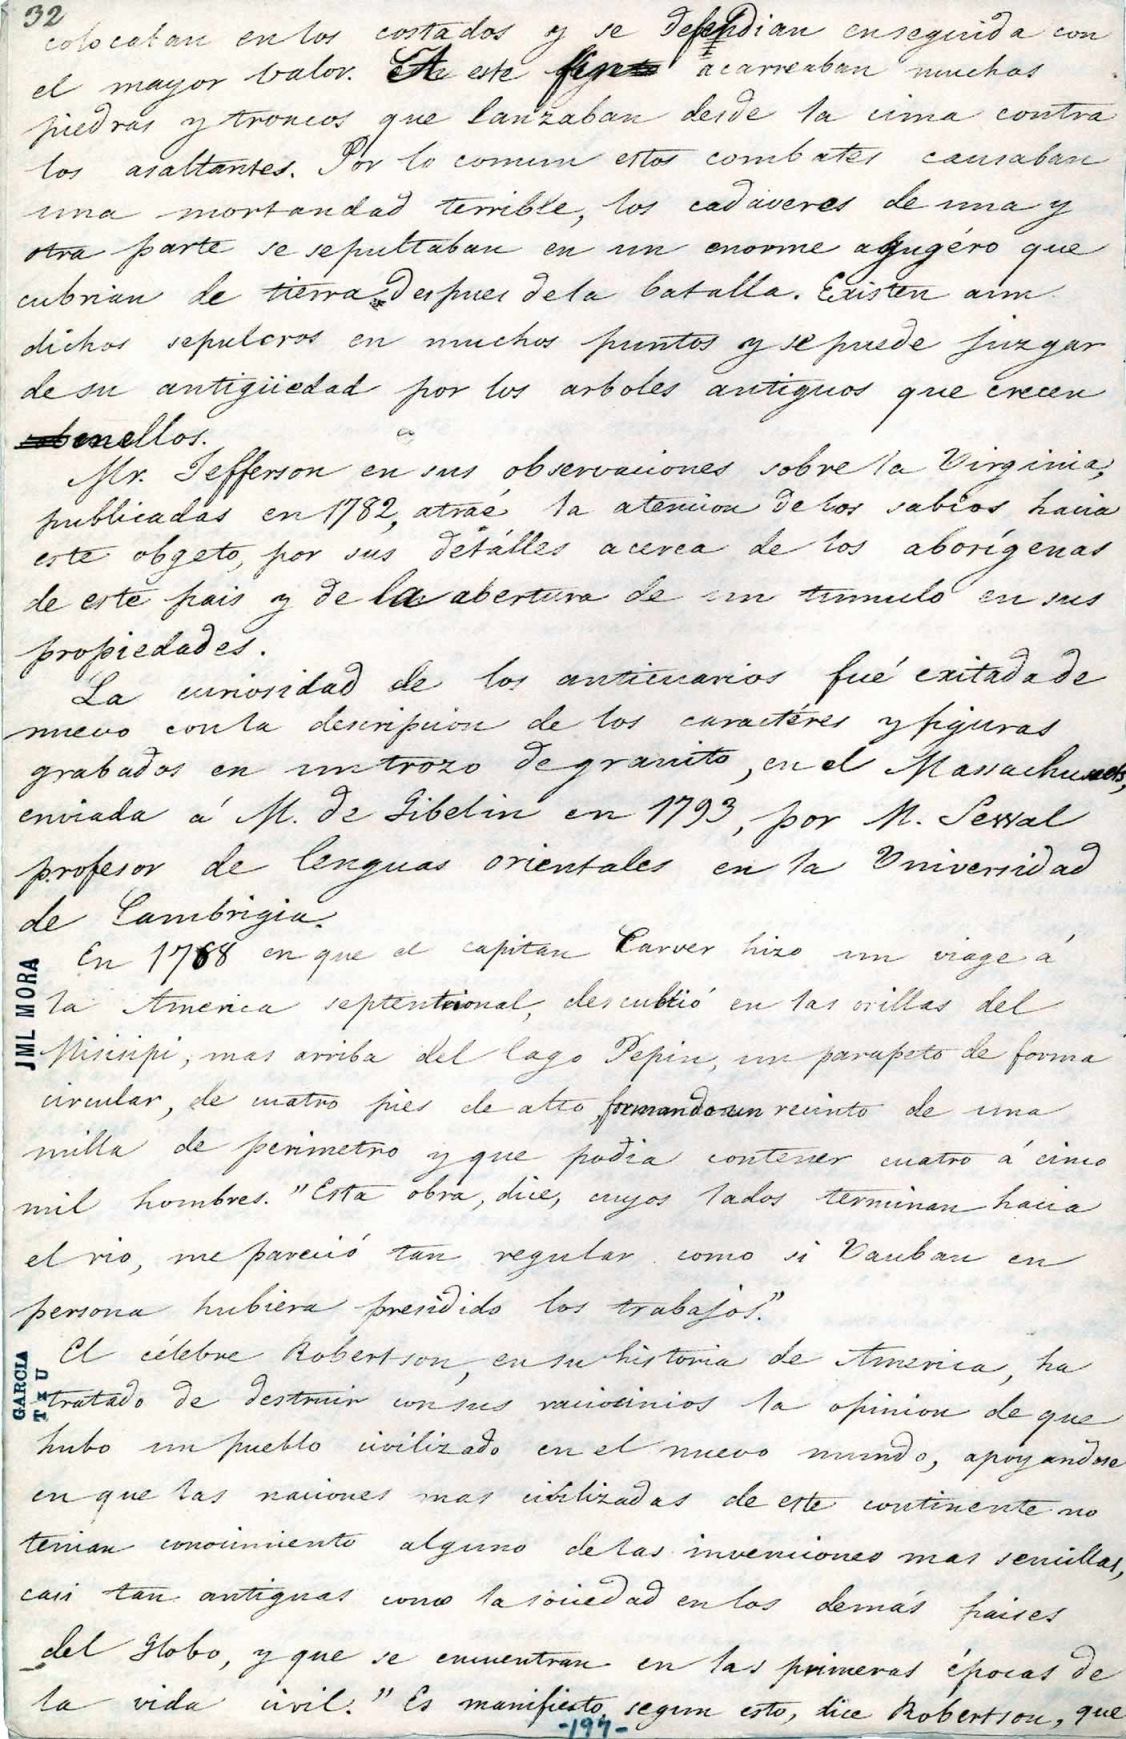 32
colocaban en los costados y se defendian enseguida con
el mayor valor. A este acarreaban muchas
piedras y troncos que lanzaban desde la cima contra
los asaltantes. Por lo comun estos combates causaban
una mortandad terrible, los cadaveres de una y
otra parte se sepultaban en un enorme agugéro que
cubrian de tierra despues dela batalla. Existen aun
dichos sepulcros en muchos puntos y se puede juzgar
de su antigüedad por los arboles antiguos que crecen
enellos.
Mr. Jefferson en sus observaciones sobre la Virginia,
publicadas en 1782, atráe la atencion de los sabios hacia
este obgeto, por sus detálles acerca de los aborígenas
de este pais y de la abertura de un tumulo en sus
propiedades.
La curiosidad de los anticuarios fué exitada de
nuevo con la descripcion de los caractéres y figuras
grabados en un trozo de granito, en el Massachusets,
enviada á M. de Gibelin en 1793, por M. Sewal
profesor de lenguas orientales en la Universidad
de Cambrigia.
En 1768 en que el capitan Carver hizo un viage á
la America septentrional, descubrió en las orillas del
Misisipi, mas arriba del lago Pepin, un parapeto de forma
circular, de cuatro pies de alto formando un recinto de una
milla de perimetro y que podia contener cuatro á cinco
mil hombres. "Esta obra, dice, cuyos lados terminan hacia
el rio, me pareció tan regular como si Vauban en
persona hubiera presidido los trabajos."
El célebre Robertson, en su historia de America, ha
tratado de destruir con sus raciocinios la opinion de que
hubo un pueblo civilizado en el nuevo mundo, apoyandose
en que las naciones mas civilizadas de este continente no
tenian conocimiento alguno de las invenciones mas sencillas,
casi tan antiguas como la sociedad en los demás paises
del Globo, y que se encuentran en las primeras épocas de
la vida civil. "Es manifiesto, segun esto, dice Robertson, que
-197-
JML MORA
GARCIA